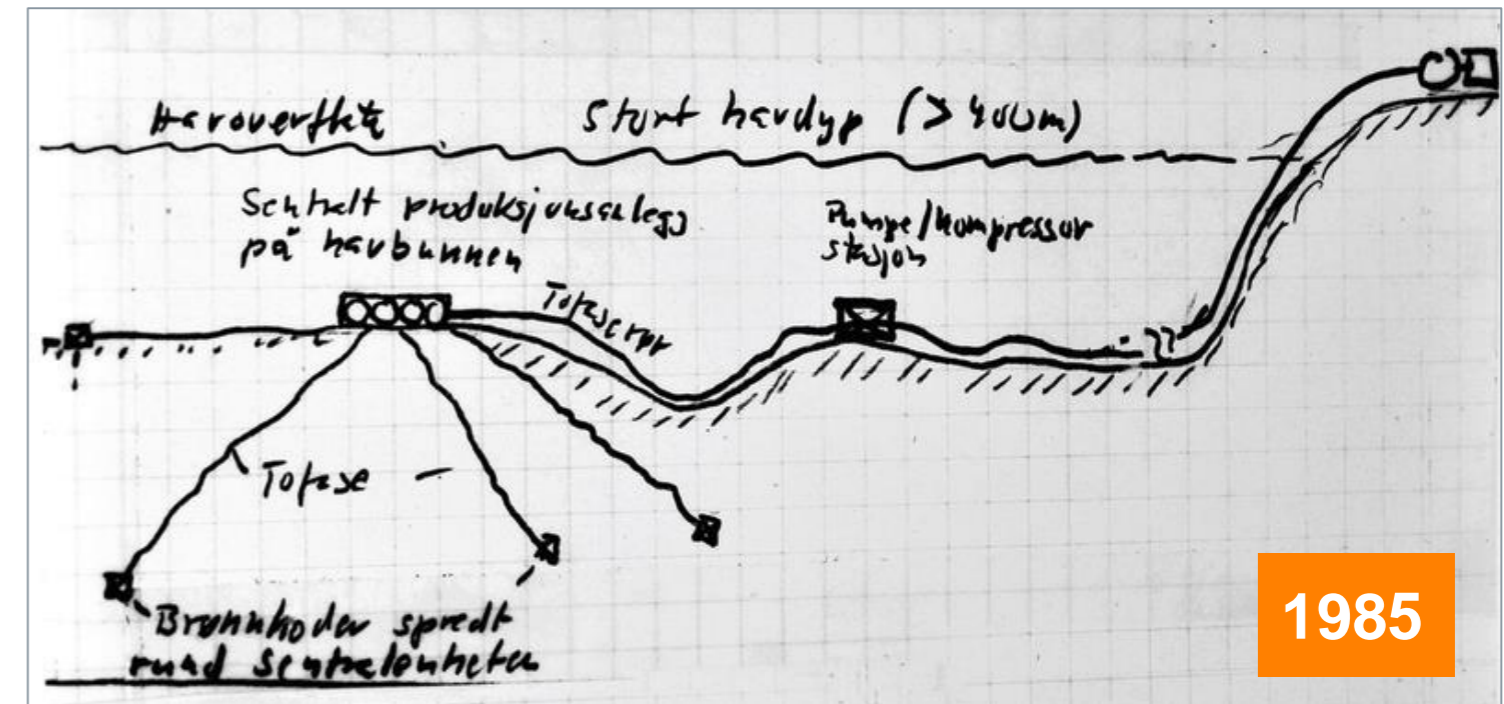 Havoverflate
Stort havdyp (> 400m)
Sentralt produksjonsanlegg
på havbunnen
Pumpe/kompressor
stasjon
Tofaserør
Tofase
Brønnhoder spredt
rund sentralenheten
1985